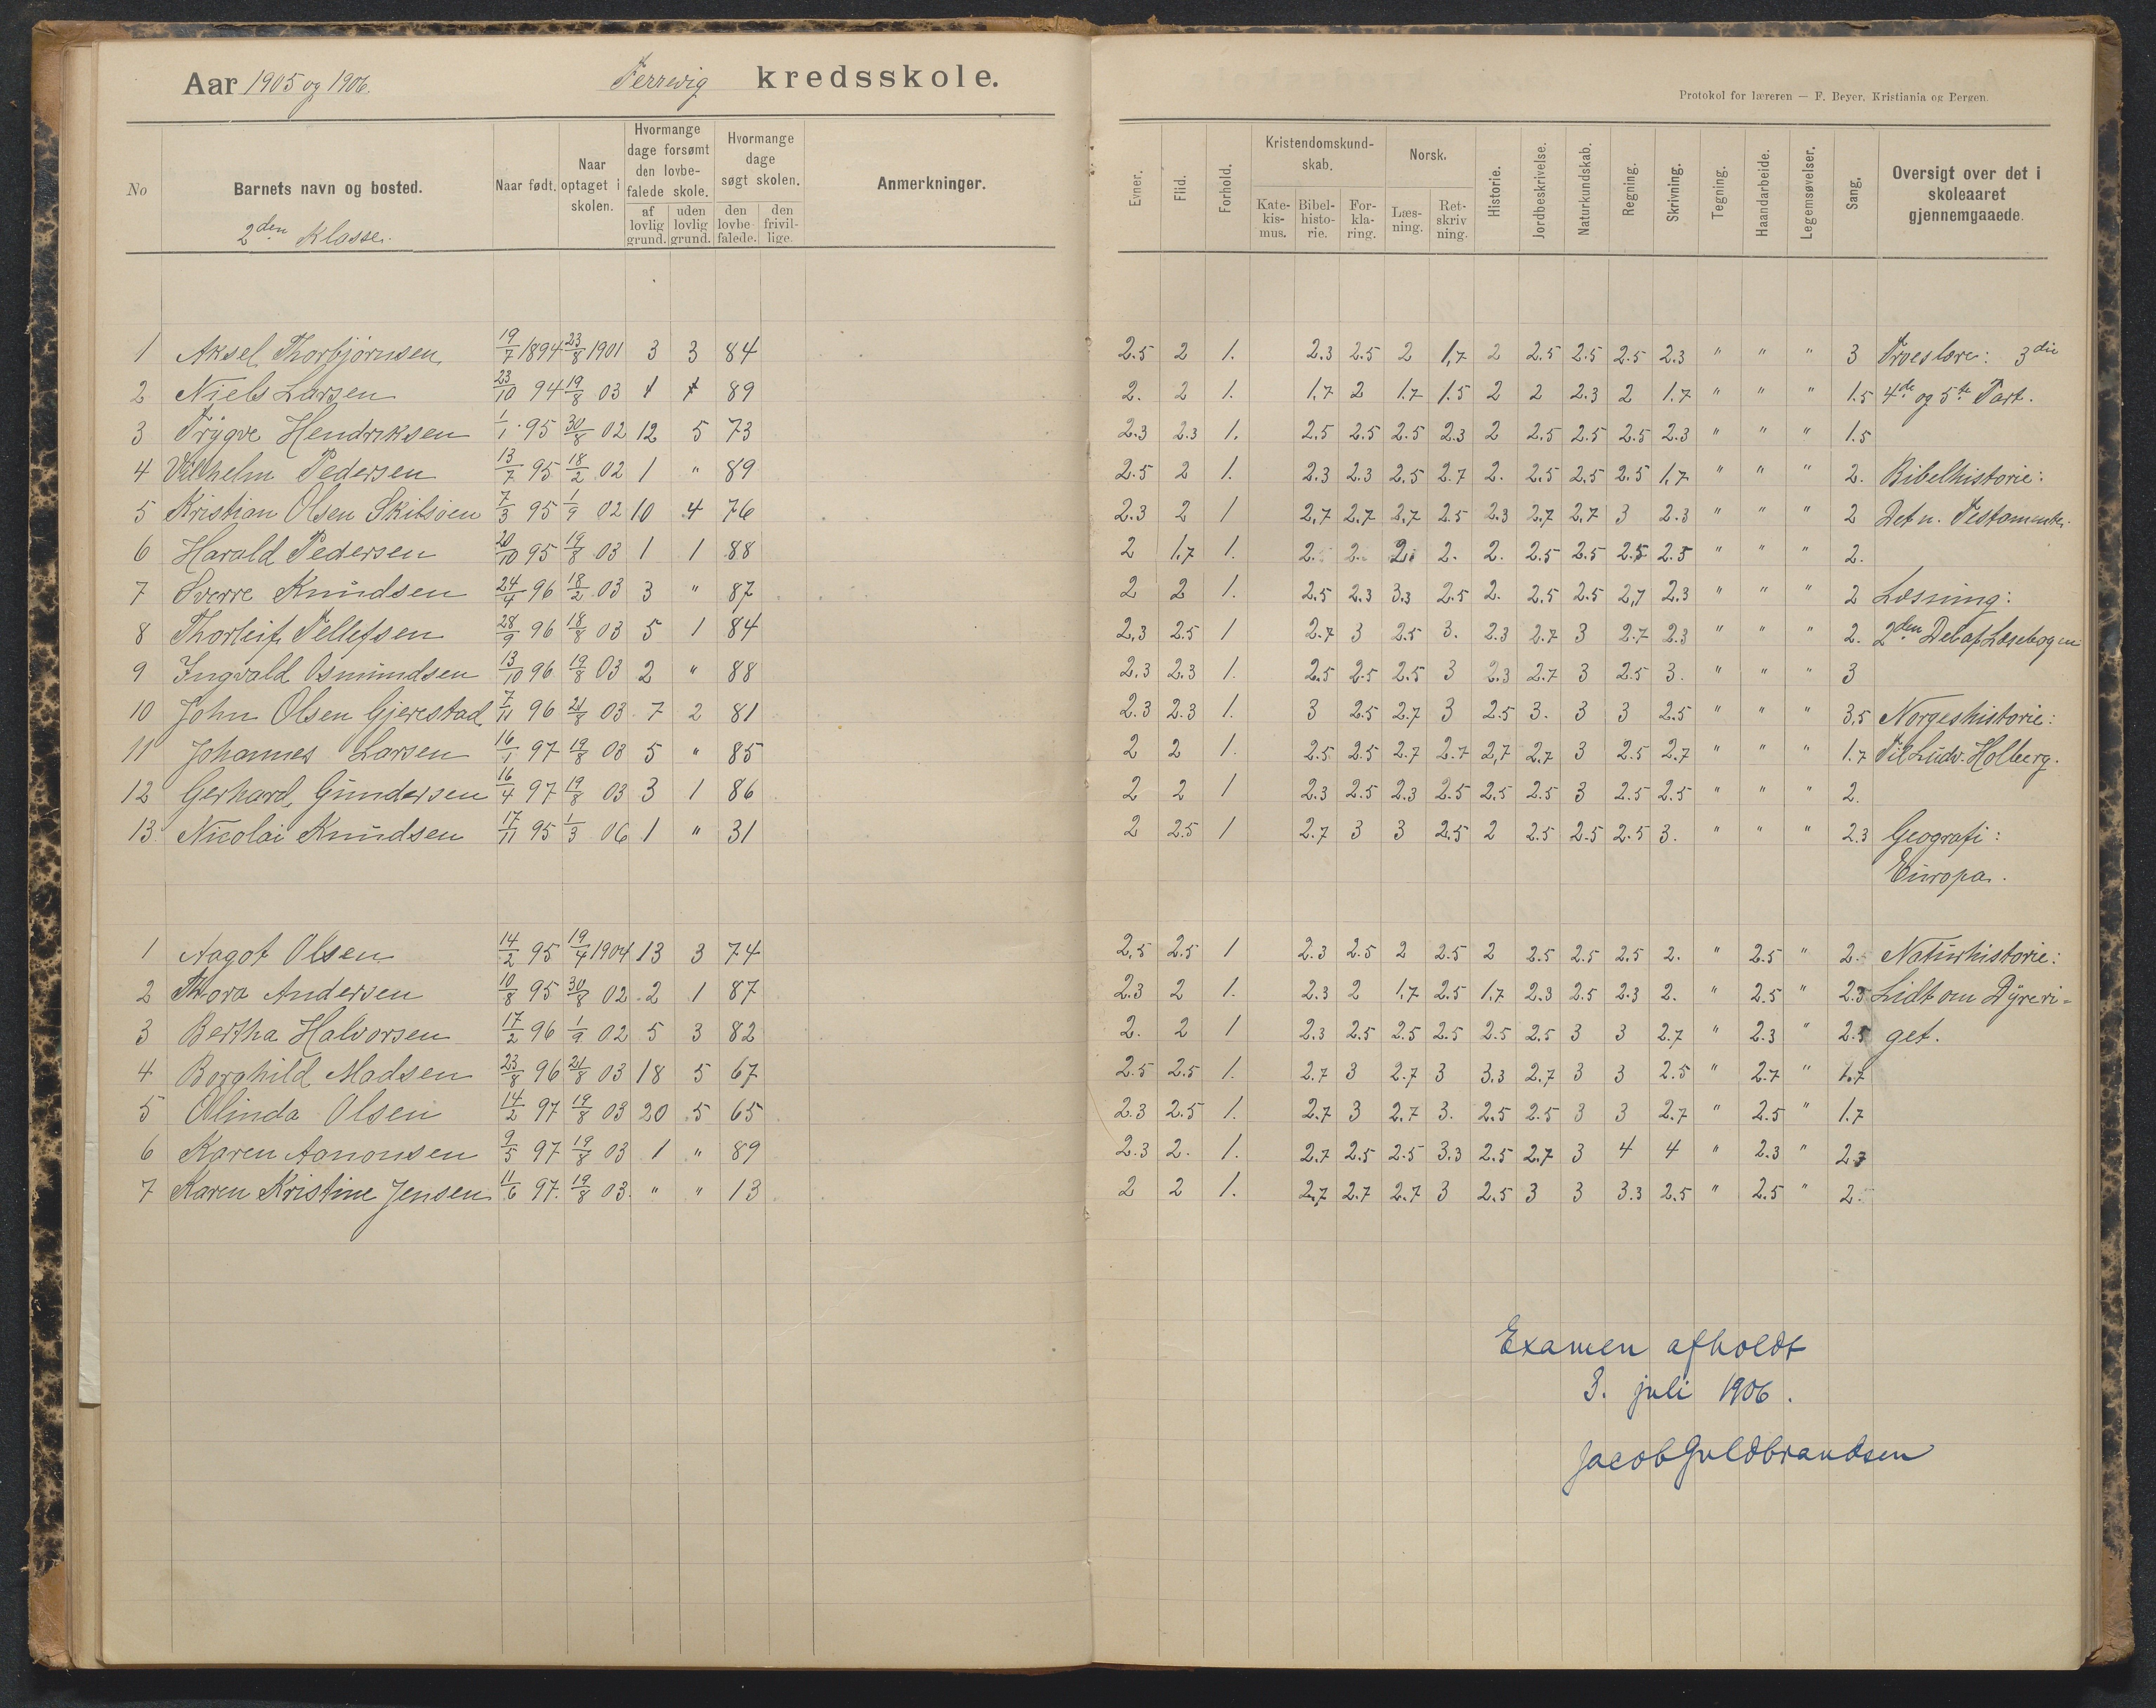 Aar 1905 og 1906. Terrevig kredsskole.
Protokol for læreren — F. Beyer, Kristiania og Bergen.
No Barnets navn og bosted. 2den Klasse. Naar født. Naar optaget i skolen. Hvormange dage forsømt den lovbefalede skole. af lovlig grund. uden lovlig grund. Hvormange dage søgt skolen. den lovbefalede. den frivillige. Anmerkninger.
Evner. Flid. Forhold. Kristendomskundskab. Katekismus. Bibelhistorie. Forklaring. Norsk. Læsning. Retskrivning. Historie. Jordbeskrivelse. Naturkundskab. Regning. Skrivning. Tegning. Haandarbeide. Legemsøvelser. Sang. Oversigt over det i skoleaaret gjennemgaaede.
1 Aksel Thorbjørnsen 19/7 1894 23/8 1901 3 3 84 2.5 2 1. 2.3 2.5 2 1,7 2 2.5 2.5 2.5 2.3 " " " 3 Troeslære: 3die
2 Niels Larsen 23/10 94 19/8 03 89 2. 2 1. 1,7 2 1.7 1.5 2 2 2.3 2 1.7 " " " 1.5 4de og 5te Part.
3 Trygve Hendriksen 1/1 95 30/8 02 12 5 73 2.3 2.3 1. 2.5 2.5 2.5 2.3 2 2.5 2.5 2.5 2.3 " " " 1.5
4 Vilhelm Pedersen 13/7 95 18/2 02 1 " 89 2.5 2 1. 2.3 2.3 2.5 2.7 2. 2.5 2.5 2.5 1.7 " " " 2. Bibelhistorie:
5 Kristian Olsen Skibsøen 7/3 95 1/9 02 10 4 76 2.3 2 1 2,7 2.7 2,7 2.5 2.3 2,7 2,7 3 2.3 " " " 2 Det n. Testamente.
6 Harald Pedersen 20/10 95 19/8 03 1 1 88 2 1.7 1. 2. 2. 2. 2. 2. 2.5 2.5 2.5 2.5 " " " 2.
7 Sverre Knudsen 24/4 96 18/2 03 3 " 87 2 2 1. 2.5 2.3 3.3 2.5 2. 2.5 2.5 2,7 2.3 " " " 2 Læsning:
8 Thorleif Tellefsen 28/9 96 18/8 03 5 1 84 2.3 2.5 1 2.7 3 2.5 3. 2.3 2.7 3 2.7 2.3 " " " 2. 2den Del af Læsebogen
9 Ingvald Osmundsen 13/10 96 19/8 03 2 " 88 2.3 2.3 1. 2.5 2.5 2.5 3 2.3 2.7 3 2.5 3. " " " 3
10 John Olsen Gjerestad 7/11 96 21/8 03 7 2 81 2.3 2.3 1. 3 2.5 2.7 3 2.5 3. 3 3 2.5 " " " 3,5 Norgeshistorie:
11 Johannes Larsen 16/1 97 19/8 03 5 " 85 2 2 1. 2.5 2.5 2.7 2.7 2,7 2.7 3 2.5 2.7 " " " 1.7 Til Ludv. Holberg.
12 Gerhard Gundersen 16/4 97 19/8 03 3 1 86 2 2 1 2.3 2.5 2.3 2.5 2.5 2.5 3 2.5 2.5 " " " 2.
13 Nicolai Knudsen 17/11 95 1/3 06 1 " 31 2 2.5 1 2.7 3 3 2.5 2 2.5 2.5 2.5 3. " " " 2.3 Geografi:
Europa.
1 Aagot Olsen 14/2 95 19/4 1904 13 3 74 2,5 2.5 1 2.3 2.5 2 2.5 2 2.5 2.5 2.5 2. " 2.5 " 2. Naturhistorie:
2 Thora Andersen 10/8 95 30/8 02 2 1 87 2.3 2 1. 2.3 2 1.7 2.5 1.7 2.3 2.5 2.3 2. " 2.5 " 2.3 Lidt om Dyreri-
3 Bertha Halvorsen 17/2 96 1/9 02 5 3 82 2. 2 1 2.3 2.5 2.5 2.5 2.5 2.5 3 3 2.7 " 2.3 " 2.5 get.
4 Borghild Madsen 23/8 96 21/8 03 18 5 67 2.5 2.5 1. 2.7 3 2.7 3 3.3 2.7 3 3 2.5 " 2.7 " 1.7
5 Olinda Olsen 14/2 97 19/8 03 20 5 65 2.3 2.5 1. 2.7 3 2.7 3. 2.5 2.5 3 3 2.7 " 2.5 " 1.7
6 Karen Aanonsen 9/5 97 19/8 03 1 " 89 2.3 2. 1. 2.7 2.5 2.5 3.3 2.5 2.7 3 4 4 " 2.3 " 2.7
7 Karen Kristine Jensen 11/6 97. 19/8 03. " " 13 2 2 1. 2,7 2.7 2.7 3 2.5 3 3 3.3 2.5 " 2.5 " 2.
Examen afholdt
3. juli 1906.
Jacob Guldbrandsen